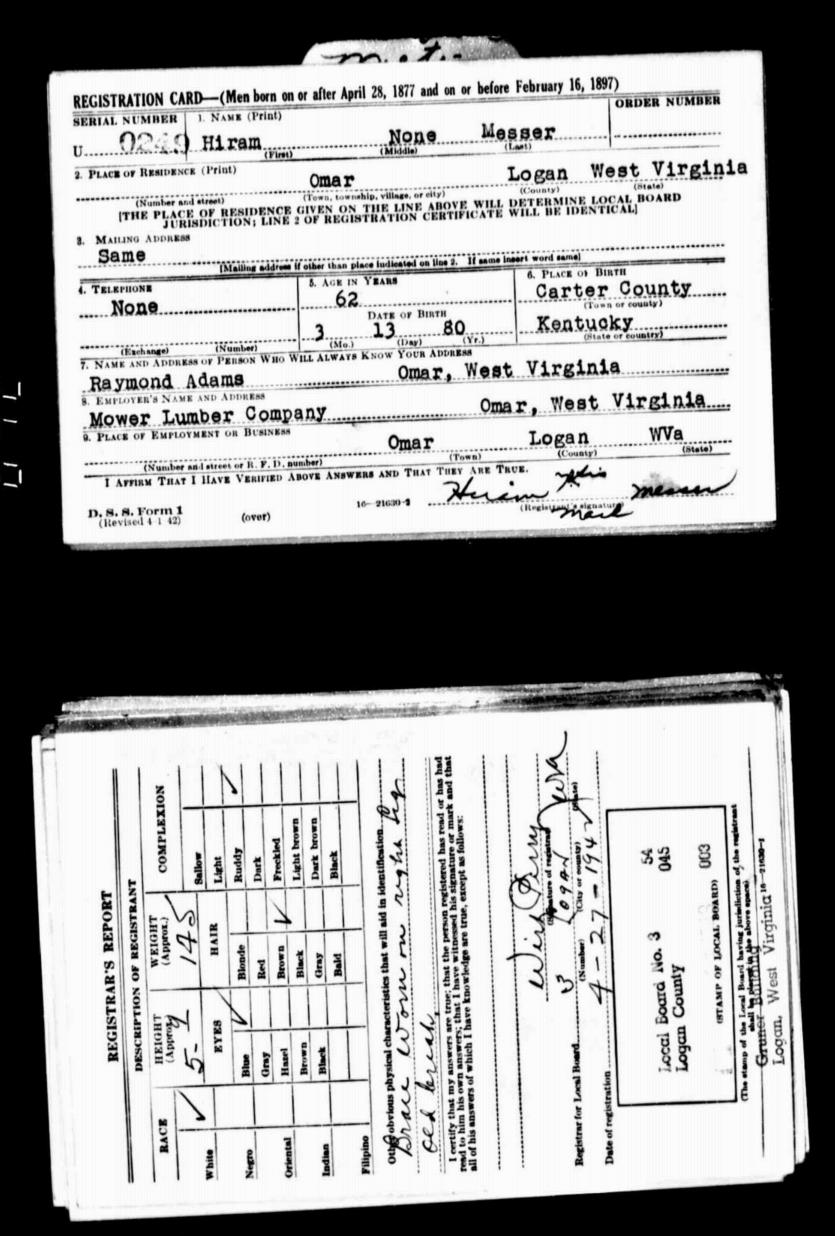 REGISTRATION CARD—(Men born on or after April 28, 1877 and on or before February 16, 1897)
SERIAL NUMBER
1. NAME (Print)
ORDER NUMBER
U 0249
Hiram None Messer
(First) (Middle) (Last)
2. PLACE OF RESIDENCE (Print)
Omar Logan West Virginia
(Number and street) (Town, township, village, or city) (County) (State)
[THE PLACE OF RESIDENCE GIVEN ON THE LINE ABOVE WILL DETERMINE LOCAL BOARD
JURISDICTION; LINE 2 OF REGISTRATION CERTIFICATE WILL BE IDENTICAL]
3. MAILING ADDRESS
Same
[Mailing address if other than place indicated on line 2. If same insert word same]
4. TELEPHONE
None
(Exchange) (Number)
5. AGE IN YEARS
62
DATE OF BIRTH
3 13 80
(Mo.) (Day) (Yr.)
6. PLACE OF BIRTH
Carter County
(Town or county)
Kentucky
(State or country)
7. NAME AND ADDRESS OF PERSON WHO WILL ALWAYS KNOW YOUR ADDRESS
Raymond Adams Omar, West Virginia
8. EMPLOYER'S NAME AND ADDRESS
Mower Lumber Company Omar, West Virginia
9. PLACE OF EMPLOYMENT OR BUSINESS
Omar Logan WVa
(Number and street or R. F. D. number) (Town) (County) (State)
I AFFIRM THAT I HAVE VERIFIED ABOVE ANSWERS AND THAT THEY ARE TRUE.
Hiram His Messer
D. S. S. Form 1
(Revised 4-1-42)
(over)
16—21630-2
(Registrant's signature)
Mark
REGISTRAR'S REPORT
DESCRIPTION OF REGISTRANT
RACE
HEIGHT
(Approx.)
WEIGHT
(Approx.)
COMPLEXION
5-1
145
White
Negro
Oriental
Indian
Filipino
EYES
Blue
Gray
Hazel
Brown
Black
HAIR
Blonde
Red
Brown
Black
Gray
Bald
Sallow
Light
Ruddy
Dark
Freckled
Light brown
Dark brown
Black
Other obvious physical characteristics that will aid in identification
Brace worn on right leg
old break.
I certify that my answers are true; that the person registered has read or has had
read to him his own answers; that I have witnessed his signature or mark and that
all of his answers of which I have knowledge are true, except as follows:
Perry
(Signature of registrar)
Registrar for Local Board 3 Logan WVa
(Number) (City or county) (State)
Date of registration 4-27-1942
Local Board No. 3 54
Logan County 045
003
(STAMP OF LOCAL BOARD)
(The stamp of the Local Board having jurisdiction of the registrant
shall be placed in the above space)
Gruner Building
16—21630-1
Logan, West Virginia